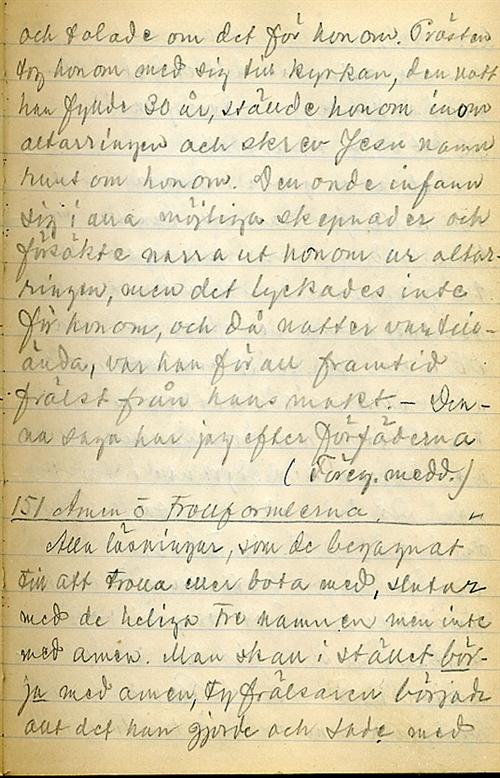 och talade om det för honom. Prästen
tog honom med sig till kyrkan, den natt
han fyllde 30 år, ställde honom inom
altarringen och skrev Jesu namn
runt om honom. Den onde infann
sig i alla möjliga skepnader och
försökte narra ut honom ur altar-
ringen, men det lyckades inte
för honom, och då natten var till-
ända, var han för all framtid
frälst från hans makt. – Den-
na saga har jag efter förfäderna
(Föreg. medd.)
151 Amen o Trollformlerna. "
Alla läsningar, som de begagnat
till att trolla eller bota med, slutar
med de heliga tre namnen men inte
med amen. Man skall i stället bör-
ja med amen, ty frälsaren började
allt det han gjorde och sade med